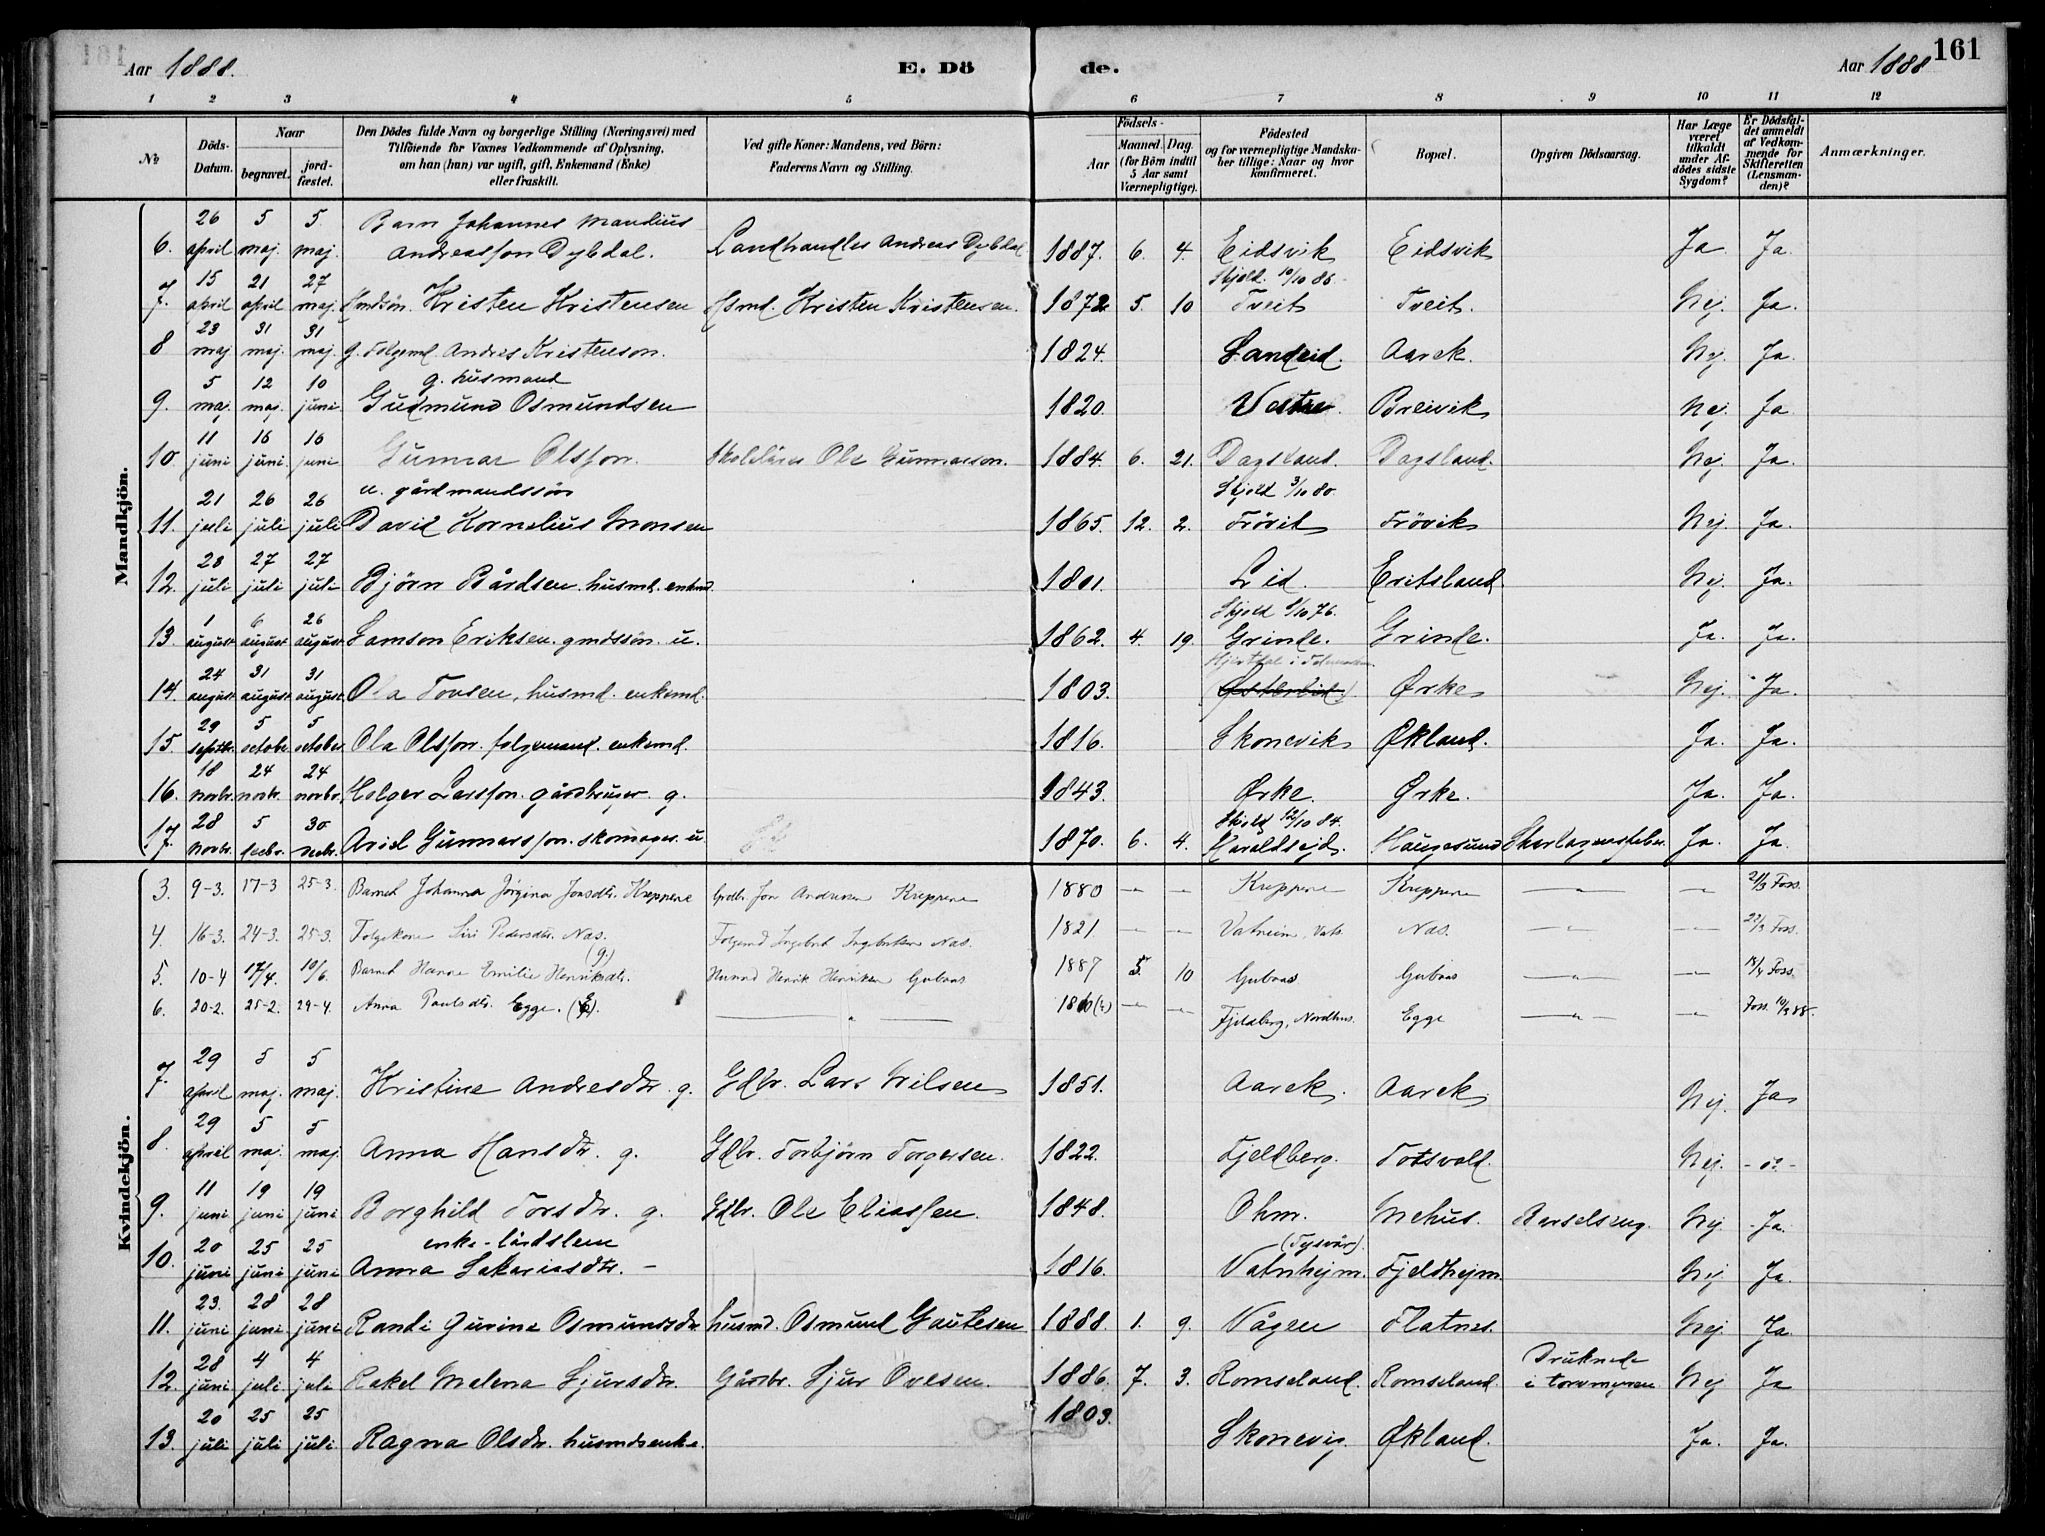 161
Aar 1888. E. Dö de. Aar 1888
1 2 3 4 5 6 7 8 9 10 11 12
No
Döds-Datum.
Naar
begravet.
jord-fæstet.
Den Dödes fulde Navn og borgerlige Stilling (Næringsvei) med
Tilföiende for Voxnes Vedkommende af Oplysning,
om han (hun) var ugift, gift, Enkemand (Enke)
eller fraskilt.
Ved gifte Koner: Mandens, ved Börn:
Faderens Navn og Stilling.
Födsels-
Aar
Maaned. Dag.
(for Börn indtil
5 Aar samt
Værnepligtige).
Födested
og for værnepligtige Mandska-
ber tillige: Naar og hvor
konfirmeret.
Bopæl.
Opgiven Dödsaarsag.
Har Læge
været
tilkaldt
under Af-
dödes sidste
Sygdom?
Er Dödsfal-
det anmeldt
af Vedkom-
mende for
Skifteretten
(Lensman-
den)?
Anmærkninger.
Mandkjön.
26 5 5 Barn Johannes Mandius
6. april maj. maj. Andreassøn Dybdal. Landhandler Andreas Dybdal 1887. 6. 4. Eidsvik Eidsvik Ja Ja.
15 21 27 Skjold 10/10 86.
7. april april maj. Kristen Kristensen Hsmd. Kristen Kristensen. 1872 5. 10 Tveit Tveit. Nej. Ja.
23 31 31
8 maj maj. maj. g. Folgemd. Andres Kristenson. 1824. Sandeid. Aarek. Nej. Ja.
5 12 10 g. husmand
9. maj. maj. juni Gudmund Osmundsen 1820. Vestre. Breivik Nej. Ja
11 16 16
10. juni juni. juni Gunnar Olsson. Skolelærer Ole Gunnarson. 1884. 6. 21. Dagsland. Dagsland. Nej. Ja.
21 26 26 u. gårdmandssøn Skjold 3/10 80.
11. juli juli juli David Kornelius Monsen 1865. 12. 2. Frövik Frövik Nej. Ja.
28 27 27
12. juli juli juli Bjørn Bårdsen. husmd. enkmd. 1801. Lid. Eritsland Nej. Ja.
1 6 26 Skjold 1/10 76.
13. august august august Samson Eriksen. gmdssøn. u. 1862. 4. 19. Grinde. Grinde. Ja. Ja.
24 31 31
14. august august august Ola Tovsen, husmd. enkemd. 1803. Ørke Nej. Ja.
29 5 5
15. septbr. october october Ola Olsson. folgemand. enkemd. 1816. Skonevik Økland. Ja. Ja.
18 24 24
16. novbr. novbr. novbr. Helger Larsson. gårdbruger. g. 1843. Ørke. Ørke. Ja. Ja.
28 5 30 Skjold 12/10 84.
17. novbr. decbr. decbr. Aviel Gunnarsson. skomager. u. 1870. 6. 4. Haraldsejd. Haugesund Skarlagensfeber Ja. Ja.
Kvindekjön.
3. 9-3. 17-3 25-3. Barnet Johanna Jörgine Jonsdtr. Kreppene Grdbr. Jon Andersen Kreppene 1880 — — Kreppene Kreppene —"— — 21/3 Foss.
4. 16-3. 24-3. 25-3. Folgekone Siri Pedersdtr. Nas. (g.) Folgemd Ingebret Ingebretsen Nas. 1821 — — Vatneim, Vats Nas. —"— — 22/3 Foss.
5. 10-4 17/4. 10/6. Barnet Hanne Emilie Henriksdtr. Husmd Henrik Henriksen Gubaas 1887 5. 10 Gubaas Gubaas —"— — 18/4 Foss.
6. 20-2. 25-2. 29-4. Anna Paulsdtr. Egge. —"— — — Fjeldberg, Nordhus. Egge —"— — Foss. 10/3 88.
29 5 5
7. april maj. maj. Kristine Andresdtr. g. Gdbr. Lars Nilsen 1851. Aarek. Aarek. Nej. Ja
29 5 5
8. april maj. maj. Anna Hansdtr. g. Gdbr. Torbjørn Torgersen. 1822. Fjeldberg. Totsvold. Nej. - o. -
11 19 19
9. juni juni juni Borghild Torsdtr. g. Gdbr. Ole Eliassen. 1848. Ohm. Mehus. Barselseng. Nej - Ja.
20 25 25 enke-lårdslem (Tysvär).
10. juni juni juni Anna Sakariasdtr. – 1816. Vatnhejm. Fjeldhejm. Nej Ja.
23. 28 28
11. juni juni juni Randi Gurine Osmundsdtr. husmd. Osmund Gautesen 1888. 1. 9. Vågen Flatnes. Nej. Ja.
28 4 4 Druknede
12. juni juli juli Rakel Malena Sjursdtr. Gårdbr. Sjur Ovesen. 1886. 7. 3. Romseland. Romseland. i torvmyren Nej Ja
20 25 25
13. juli juli juli Ragna Olsdtr. husmdsenke. 1803. Skonevig. Økland. Ja. Ja.